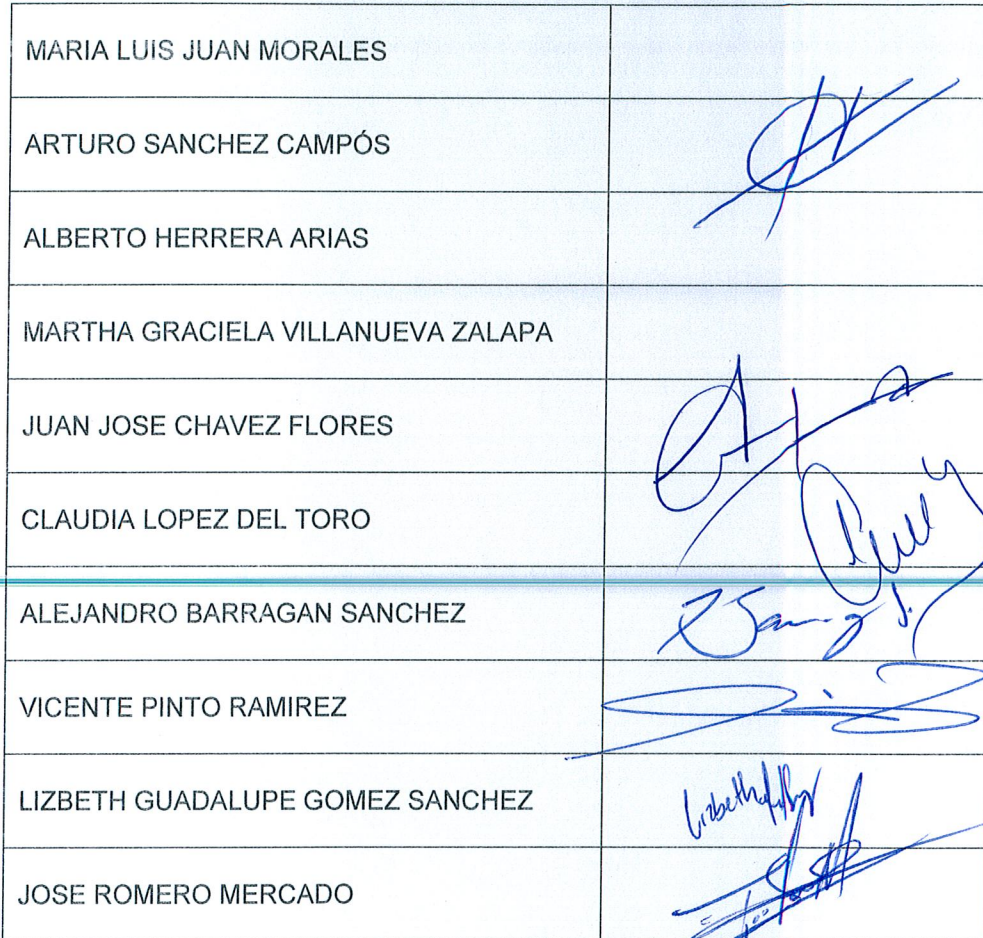 MARIA LUIS JUAN MORALES
ARTURO SANCHEZ CAMPÓS
ALBERTO HERRERA ARIAS
MARTHA GRACIELA VILLANUEVA ZALAPA
JUAN JOSE CHAVEZ FLORES
CLAUDIA LOPEZ DEL TORO
ALEJANDRO BARRAGAN SANCHEZ
VICENTE PINTO RAMIREZ
LIZBETH GUADALUPE GOMEZ SANCHEZ
JOSE ROMERO MERCADO